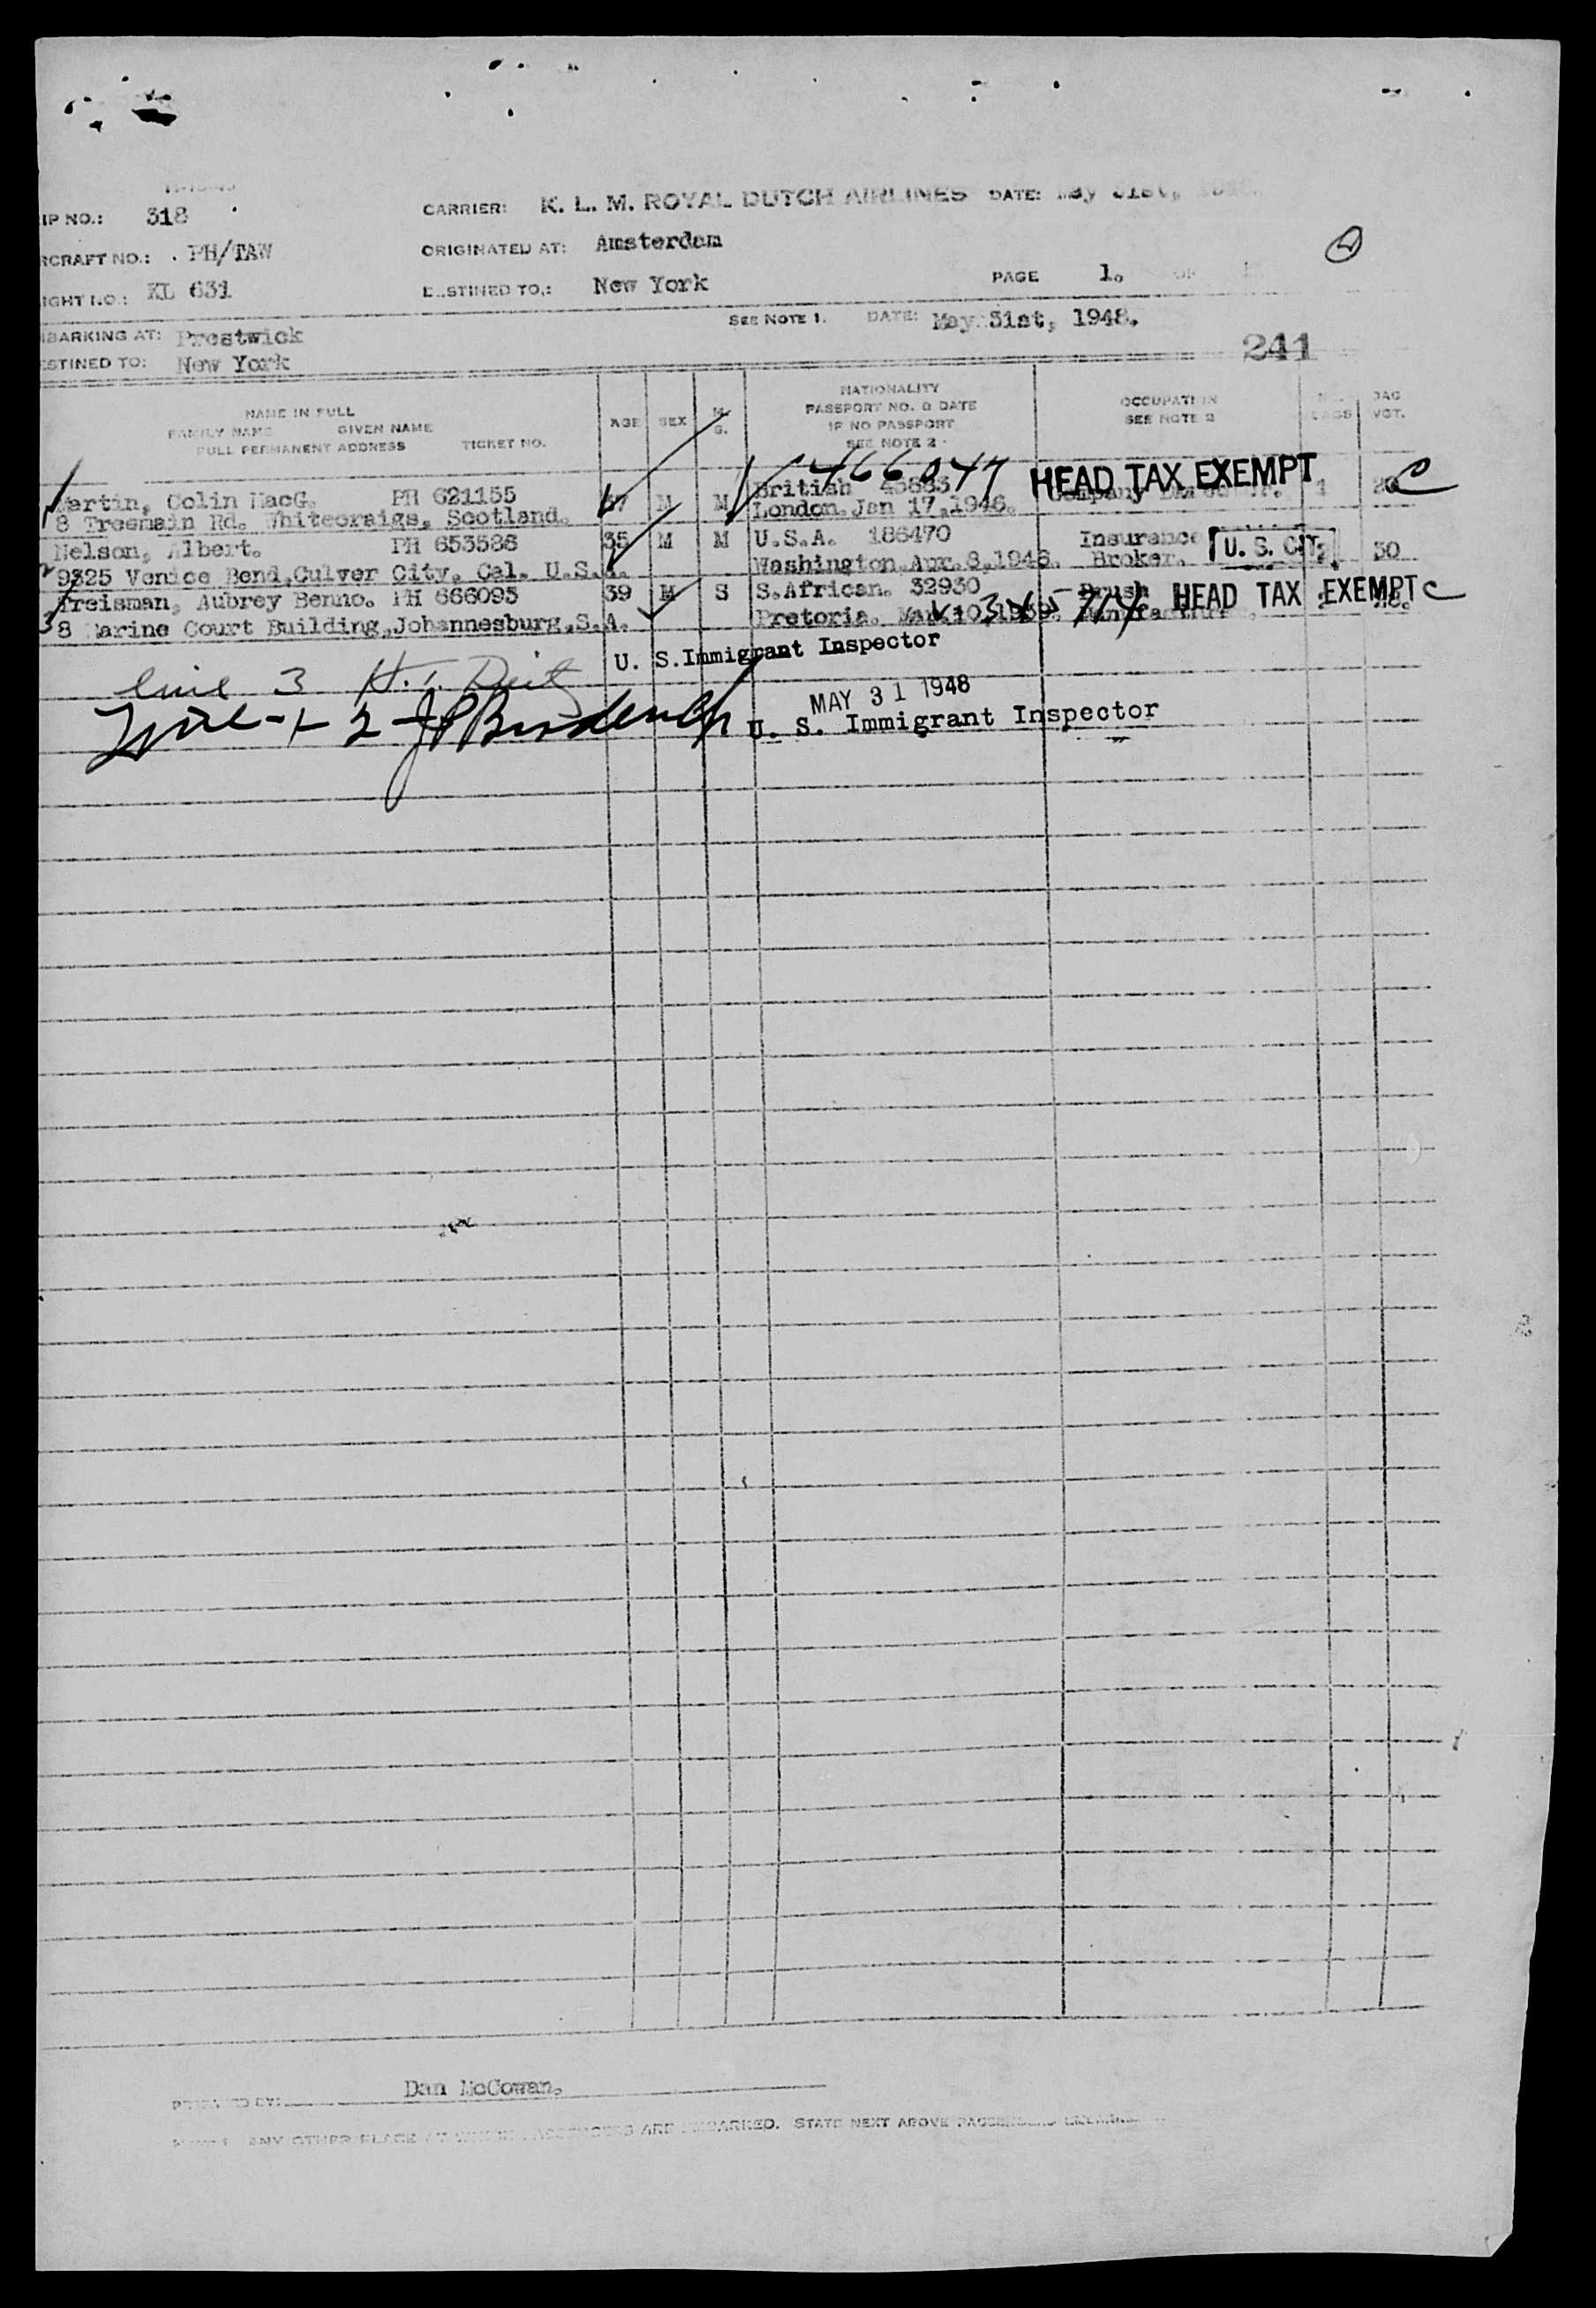 IP NO.: 318 CARRIER: K. L. M. ROYAL DUTCH AIRLINES DATE: May 31st,
RCRAFT NO.: . PH/TAW ORIGINATED AT: Amsterdam
IGHT NO.: KL 631 DESTINED TO: New York PAGE 1. OF
MBARKING AT: Prestwick SEE NOTE 1. DATE: May 31st, 1948.
ESTINED TO: New York
241
NAME IN FULL
FAMILY NAME GIVEN NAME
FULL PERMANENT ADDRESS TICKET NO.
AGE SEX M. S.
NATIONALITY
PASSPORT NO. & DATE
IF NO PASSPORT
SEE NOTE 2
OCCUPATION
SEE NOTE 2
BAGS
WGT.
466047 HEAD TAX EXEMPT
1 Martin, Colin MacG. PH 621155 37 M M British 1 C
8 Treemain Rd. Whitecraigs, Scotland. London. Jan 17, 1946.
2 Nelson, Albert. PH 653586 35 M M U.S.A. 186470 Insurance U. S. CIT. 30
9325 Venice Bend, Culver City. Cal. U.S.A. Washington Apr. 8, 1948. Broker.
3 Treisman, Aubrey Benno. PH 666095 39 M S S.African. 32930 Brush HEAD TAX EXEMPT C
8 Marine Court Building, Johannesburg, S.A. Pretoria.
U. S. Immigrant Inspector
line 3
MAY 31 1948
Line - 1 2
U. S. Immigrant Inspector
Dan McCowan.
ANY OTHER PLACE AT WHICH PASSENGERS ARE EMBARKED. STATE NEXT ABOVE PASSENGERS